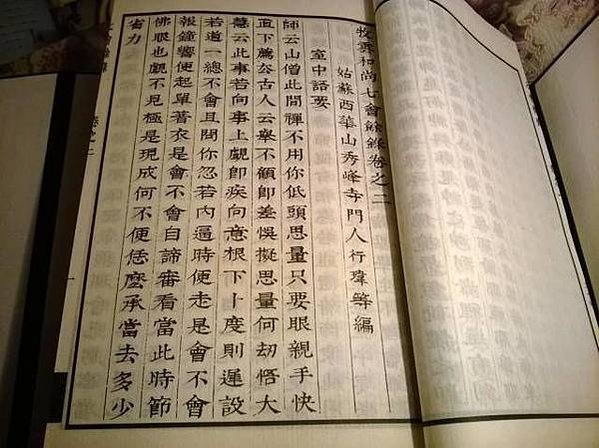 牧雲和尚七會餘錄卷之二
姑蘇西華山秀峰寺門人行瑋等編
室中語要
師云山僧此間禪不用你低頭思量只要眼親手快
直下薦取古人云舉不顧即差悞擬思量何劫悟大
慧云此事若向事上覷即疾向意根下卜度則遲設
若道一總不會且問你忽若內逼時便走是會不會
報鐘響便起單著衣是會不會自諦審看當此時節
佛眼也覷不見極是現成何不便恁麼承當去多少
省力